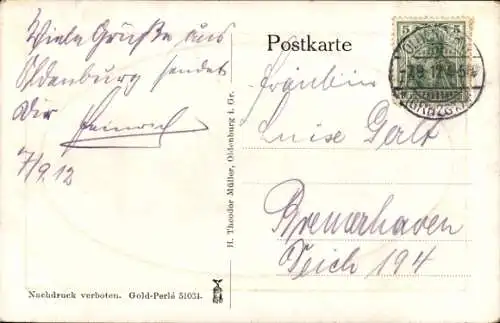 Viele Grüße aus
Oldenburg sendet
Dir Heinrich
7/9.12
Nachdruck verboten. Gold-Perle 51031.
H. Theodor Müller, Oldenburg i. Gr.
Postkarte
5 5
Fräulein
Luise
Bremerhaven
Deich 194